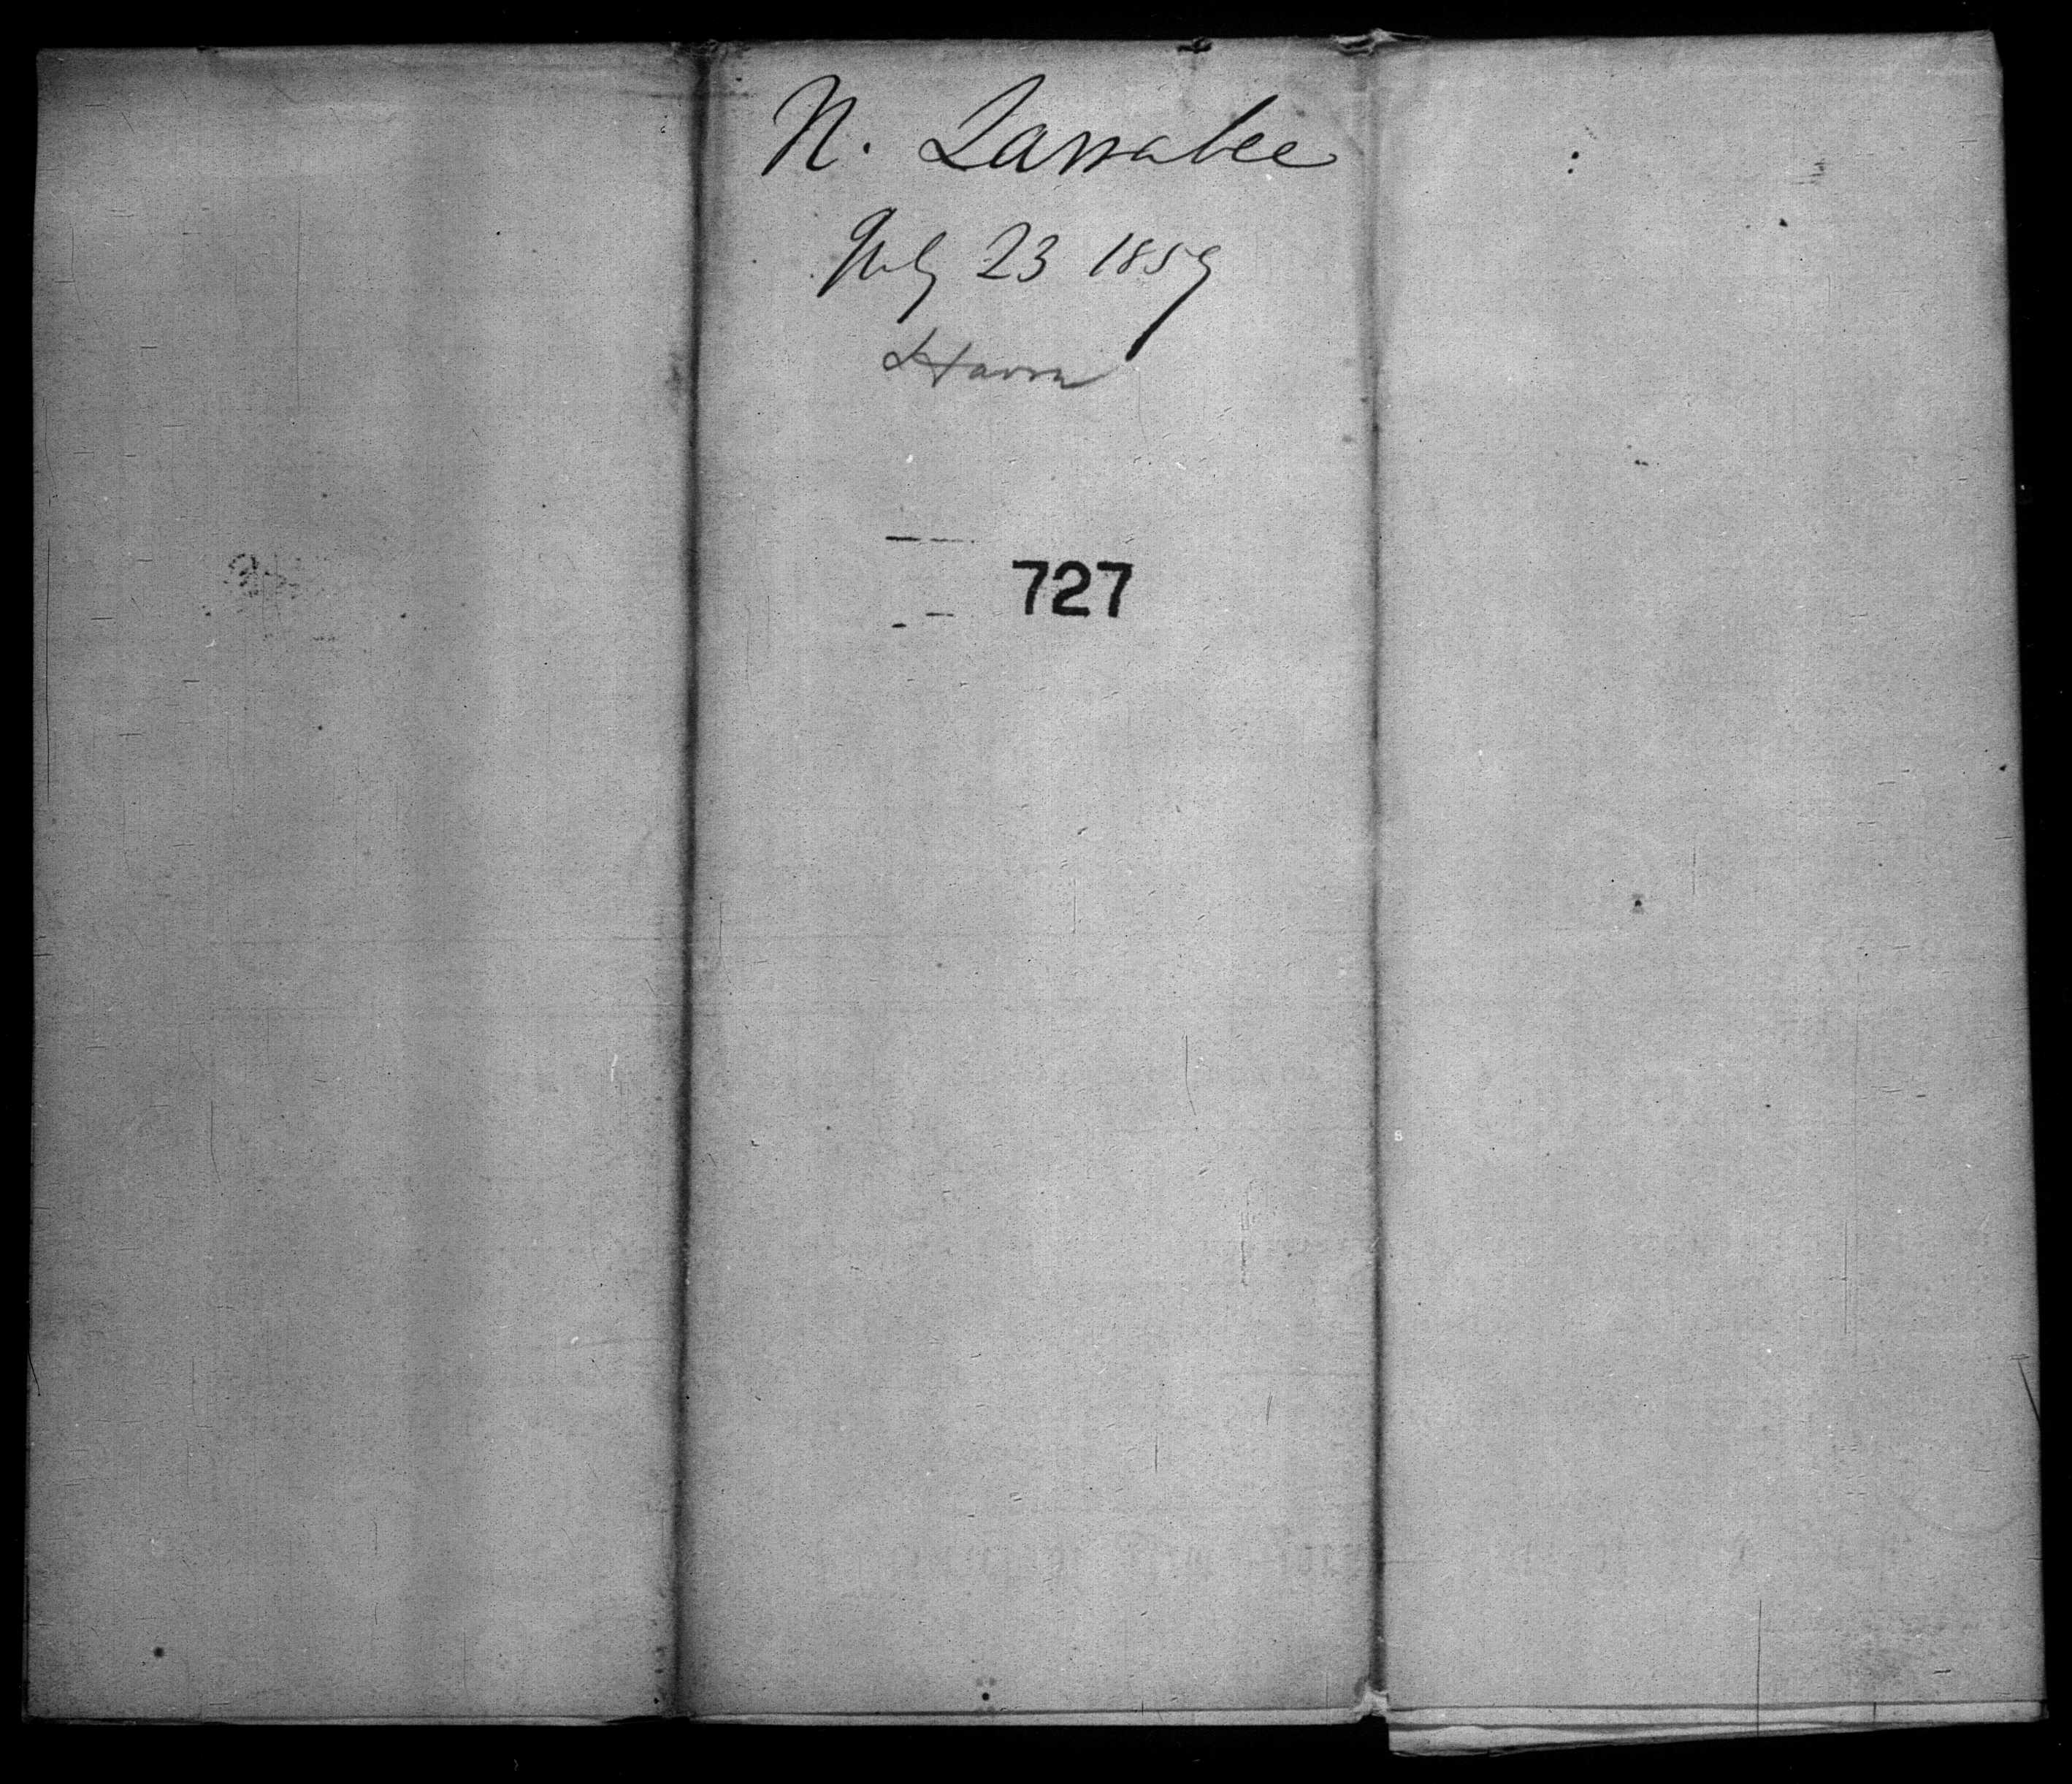 N. Larrabee
July 23 1859
727